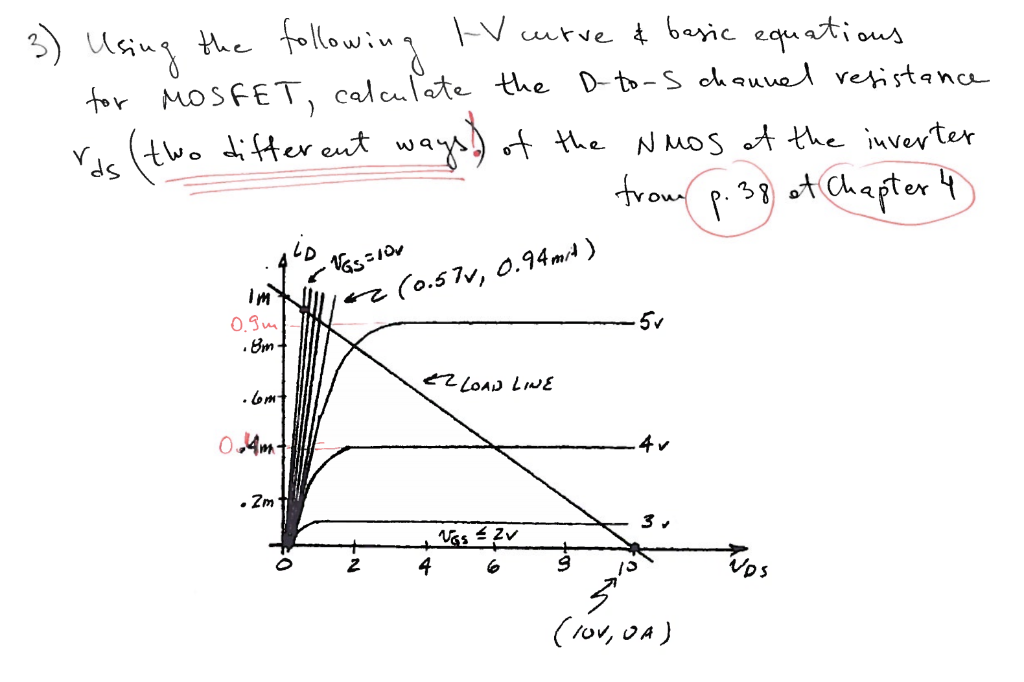 3) Using the following I-V curve & basic equations
for MOSFET, calculate the D-to-S channel resistance
rds (two different ways!) of the NMOS of the inverter
from p. 38 of Chapter 4
iD
VGS=10V
(0.57V, 0.94mA)
1m
0.9m
5V
.8m
LOAD LINE
.6m
0.4m
.4m
4V
.2m
3V
VGS ≤ 2V
0 2 4 6 8 10 VDS
(10V, 0A)